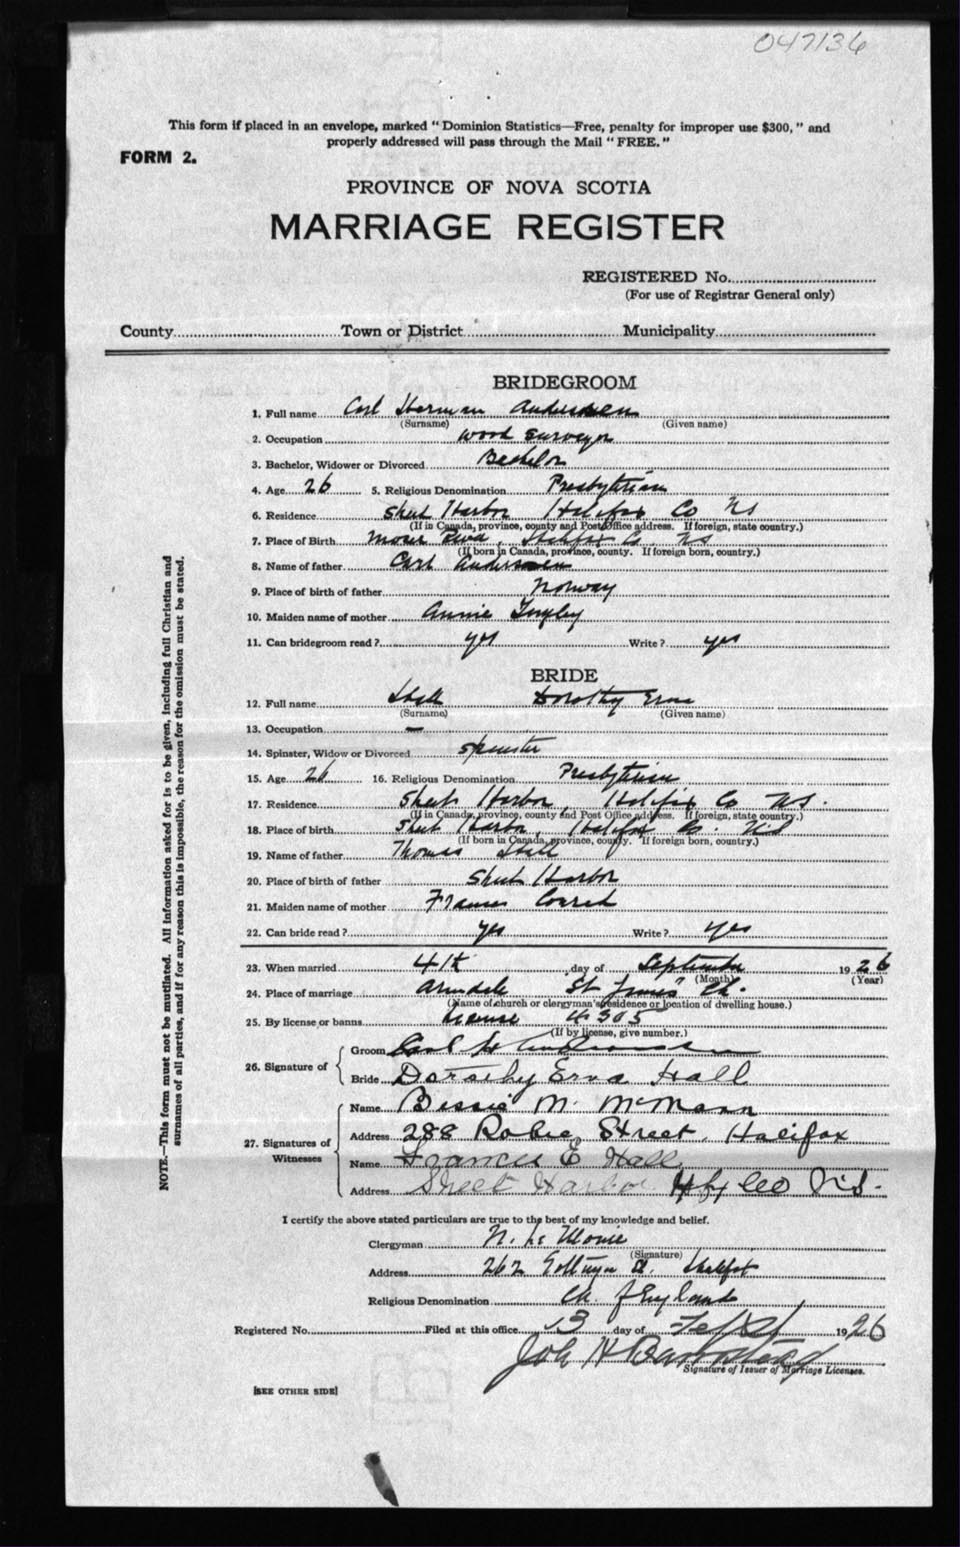 047136
This form if placed in an envelope, marked " Dominion Statistics—Free, penalty for improper use $300, " and
properly addressed will pass through the Mail " FREE. "
FORM 2.
PROVINCE OF NOVA SCOTIA
MARRIAGE REGISTER
REGISTERED No.
(For use of Registrar General only)
County Town or District Municipality
BRIDEGROOM
1. Full name Carl Herman Andersen
(Surname) (Given name)
2. Occupation wood surveyor
3. Bachelor, Widower or Divorced Bachelor
4. Age 26 5. Religious Denomination Presbyterian
6. Residence Sheet Harbor Halifax Co NS
(If in Canada, province, county and Post Office address. If foreign, state country.)
7. Place of Birth Moser River, Halifax Co. NS
(If born in Canada, province, county. If foreign born, country.)
8. Name of father Carl Andersen
9. Place of birth of father Norway
10. Maiden name of mother Annie
11. Can bridegroom read ? yes Write ? yes
BRIDE
12. Full name Hall Dorothy Erva
(Surname) (Given name)
13. Occupation —
14. Spinster, Widow or Divorced spinster
15. Age 26 16. Religious Denomination Presbyterian
17. Residence Sheet Harbor, Halifax Co NS.
(If in Canada, province, county and Post Office address. If foreign, state country.)
18. Place of birth Sheet Harbor, Halifax Co. N.S
(If born in Canada, province, county. If foreign born, country.)
19. Name of father Thomas Hall
20. Place of birth of father Sheet Harbor
21. Maiden name of mother Frances Conrad
22. Can bride read ? yes Write ? yes
23. When married 4th day of September 1926
(Month) (Year)
24. Place of marriage Armdale St James' Ch.
(Name of church or clergyman's residence or location of dwelling house.)
25. By license or banns License 4305
(If by license, give number.)
26. Signature of Groom Carl H Andersen
Bride Dorothy Erva Hall
27. Signatures of Witnesses Name Bessie M. McMann
Address 288 Robie Street, Halifax
Name Frances E Hall
Address Sheet Harbor Hfx Co N.S.
I certify the above stated particulars are true to the best of my knowledge and belief.
Clergyman N. Le Moine
(Signature)
Address 262 Gottingen St. Halifax
Religious Denomination Ch. of England
Registered No. Filed at this office 13 day of Sept 1926
Signature of Issuer of Marriage Licenses.
[SEE OTHER SIDE]
NOTE.—This form must not be mutilated. All information asked for is to be given, including full Christian and
surnames of all parties, and if for any reason this is impossible, the reason for the omission must be stated.